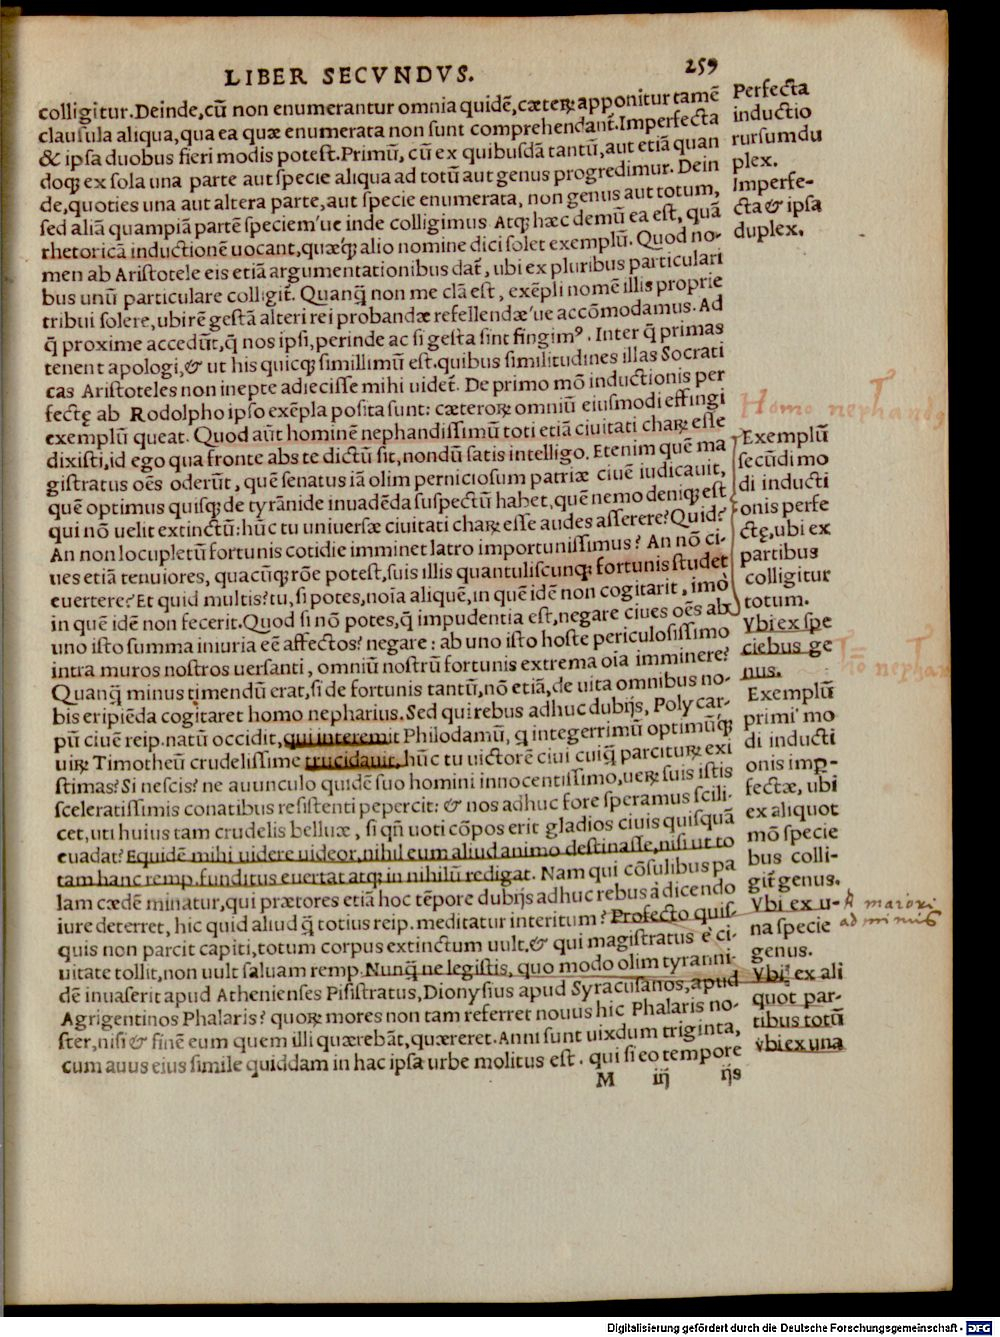 LIBER SECVNDVS.
259
colligitur. Deinde, cū non enumerantur omnia quidē, cæteꝝ apponitur tamē
clausula aliqua, qua ea quæ enumerata non sunt comprehendant̄. Imperfecta
& ipsa duobus fieri modis potest. Primū, cū ex quibusdā tantū, aut etiā quan
doqꝫ ex sola una parte aut specie aliqua ad totū aut genus progredimur. Dein
de, quoties una aut altera parte, aut specie enumerata, non genus aut totum,
sed aliā quampiā partē speciem'ue inde colligimus Atqꝫ hæc demū ea est, quā
rhetoricā inductionē uocant, quæq́ꝫ alio nomine dici solet exemplū. Quod no-
men ab Aristotele eis etiā argumentationibus dat̄, ubi ex pluribus particulari
bus unū particulare colligit̄. Quanq̄ non me clā est, exēpli nomē illis proprie
tribui solere, ubi rē gestā alteri rei probandæ refellendæ'ue accōmodamus. Ad
q̄ proxime accedūt, q̄ nos ipsi, perinde ac si gesta sint fingimꝰ. Inter q̄ primas
tenent apologi, & ut his quicqꝫ simillimū est. quibus similitudines illas Socrati
cas Aristoteles non inepte adiecisse mihi uidet̄. De primo mō inductionis per
fectę ab Rodolpho ipso exēpla posita sunt: cæteroꝝ omniū eiusmodi effingi
exemplū queat. Quod aūt hominē nephandissimū toti etiā ciuitati chaꝝ esse
dixisti, id ego qua fronte abs te dictū sit, nondū satis intelligo. Etenim quē ma
gistratus oēs oderūt, quē senatus iā olim perniciosum patriæ ciuē iudicauit,
quē optimus quisqꝫ de tyrānide inuadēda suspectū habet, quē nemo deniqꝫ est
qui nō uelit extinctū: hūc tu uniuersæ ciuitati chaꝝ esse audes asserere? Quid?
An non locupletū fortunis cotidie imminet latro importunissimus? An nō ci-
ues etiā tenuiores, quacūqꝫ rōe potest, suis illis quantuliscunqꝫ fortunis studet
euertere? Et quid multis? tu, si potes, noīa aliquē, in quē idē non cogitarit, imò
in quē idē non fecerit. Quod si nō potes, q̄ impudentia est, negare ciues oēs ab
uno isto summa iniuria eē affectos? negare: ab uno isto hoste periculosissimo
intra muros nostros uersanti, omniū nostrū fortunis extrema oīa imminere?
Quanq̄ minus timendū erat, si de fortunis tantū, nō etiā, de uita omnibus no-
bis eripiēda cogitaret homo nepharius. Sed qui rebus adhuc dubijs, Polycar-
pū ciuē reip. natū occidit, qui interemit Philodamū, q integerrimū optimūqꝫ
uiꝝ Timotheū crudelissime trucidauit, hūc tu uictorē ciui cuiq̄ parcituꝝ exi
stimas? Si nescis? ne auunculo quidē suo homini innocentissimo, ueꝝ suis istis
sceleratissimis conatibus resistenti pepercit: & nos adhuc fore speramus scili-
cet, uti huius tam crudelis belluæ, si qñ uoti cōpos erit gladios ciuis quisquā
euadat? Equidē mihi uidere uideor, nihil eum aliud animo destinasse, nisi ut to
tam hanc remp. funditus euertat atqꝫ in nihilū redigat. Nam qui cōsulibus pa
lam cædē minatur, qui prætores etiā hoc tēpore dubijs adhuc rebus à dicendo
iure deterret, hic quid aliud q̄ totius reip. meditatur interitum? Profecto quis-
quis non parcit capiti, totum corpus extinctum uult. & qui magistratus è ci-
uitate tollit, non uult saluam remp. Nunq̄ ne legistis, quo modo olim tyranni-
dē inuaserit apud Athenienses Pisistratus, Dionysius apud Syracusanos, apud
Agrigentinos Phalaris? quoꝝ mores non tam referret nouus hic Phalaris no-
ster, nisi & finē eum quem illi quærebāt, quæreret. Anni sunt uixdum triginta,
cum auus eius simile quiddam in hac ipsa urbe molitus est. qui si eo tempore
M iij ijs
Perfecta
inductio
rursum du
plex.
Imperfe-
cta & ipsa
duplex.
Homo nephandꝰ
Exemplū
secūdi mo
di inducti
onis perfe
ctę, ubi ex
partibus
colligitur
totum.
Vbi ex spe
ciebus ge
nus.
Exemplū
primi mo
di inducti
onis imp-
fectæ, ubi
ex aliquot
mō specie
bus colli-
git̄ genus.
Vbi ex u-
na specie
genus.
Vbi ex ali
quot par-
tibus totū
Vbi ex una
A maiori
ad minus
Digitalisierung gefördert durch die Deutsche Forschungsgemeinschaft - DFG